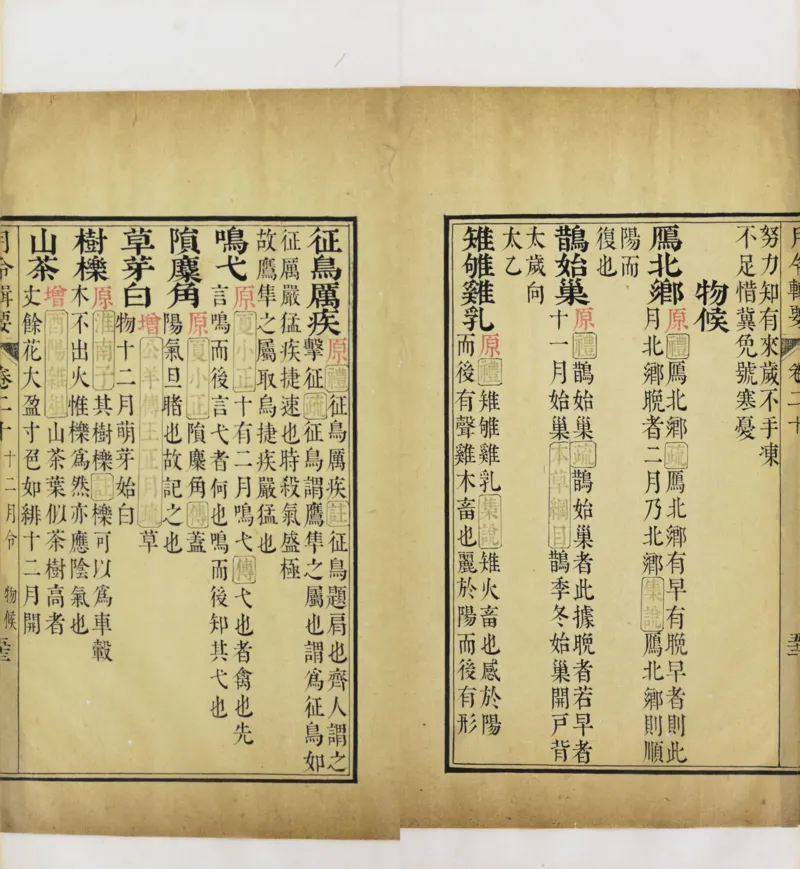 努力知有來歲不手凍
不足惜冀免號寒憂
物候
鴈北鄉 原 禮 鴈北鄉 疏 鴈北鄉有早有晚早者則此
月北鄉晚者二月乃北鄉 集說 鴈北鄉則順
陽而
復也
鵲始巢 原 禮 鵲始巢 疏 鵲始巢者此據晚者若早者
十一月始巢 本草綱目 鵲季冬始巢開戶背
太歲向
太乙
雉雊雞乳 原 禮 雉雊雞乳 集說 雉火畜也感於陽
而後有聲雞木畜也麗於陽而後有形
征鳥厲疾 原 禮 征鳥厲疾 註 征鳥題肩也齊人謂之
擊征 疏 征鳥謂鷹隼之屬也謂爲征鳥如
征厲嚴猛疾捷速也時殺氣盛極
故鷹隼之屬取鳥捷疾嚴猛也
鳴弋 原 夏小正 十有二月鳴弋 傳 弋也者禽也先
言鳴而後言弋者何也鳴而後知其弋也
隕麋角 原 夏小正 隕麋角 傳 蓋
陽氣旦睹也故記之也
草芽白 增 公羊傳王正月疏 草
物十二月萌芽始白
樹櫟 原 淮南子 其樹櫟 註 櫟可以爲車轂
木不出火惟櫟爲然亦應陰氣也
山茶 增 酉陽雜俎 山茶葉似茶樹高者
丈餘花大盈寸色如緋十二月開
月令輯要 卷二十 十二月令 物候